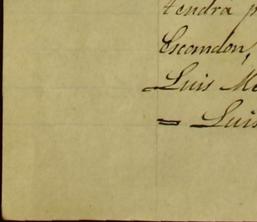 tendrá p
Escandon,
Luis M
= Luis